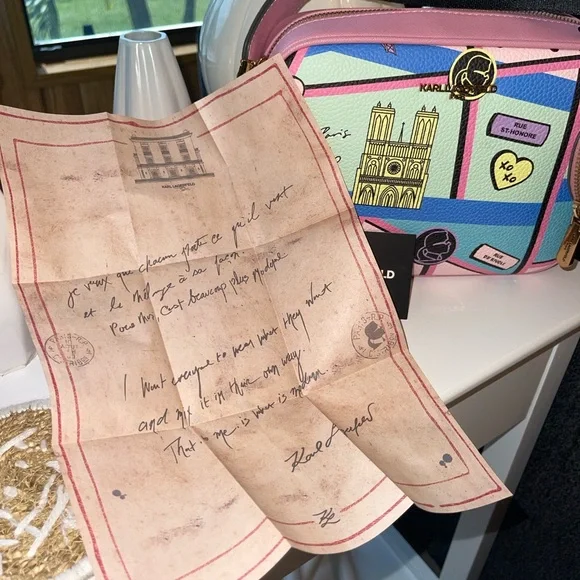 KARL LAGERFELD
Paris
RUE
ST-HONORE
XO
XO
RUE
DE RIVOLI
KARL LAGERFELD
je veux que chacun porte ce qu'il veut
et le mélange à sa façon.
Pour moi c'est beaucoup plus moderne
I want everyone to wear what they want
and mix it in their own way.
That to me is what is modern.
Karl Lagerfeld
KL